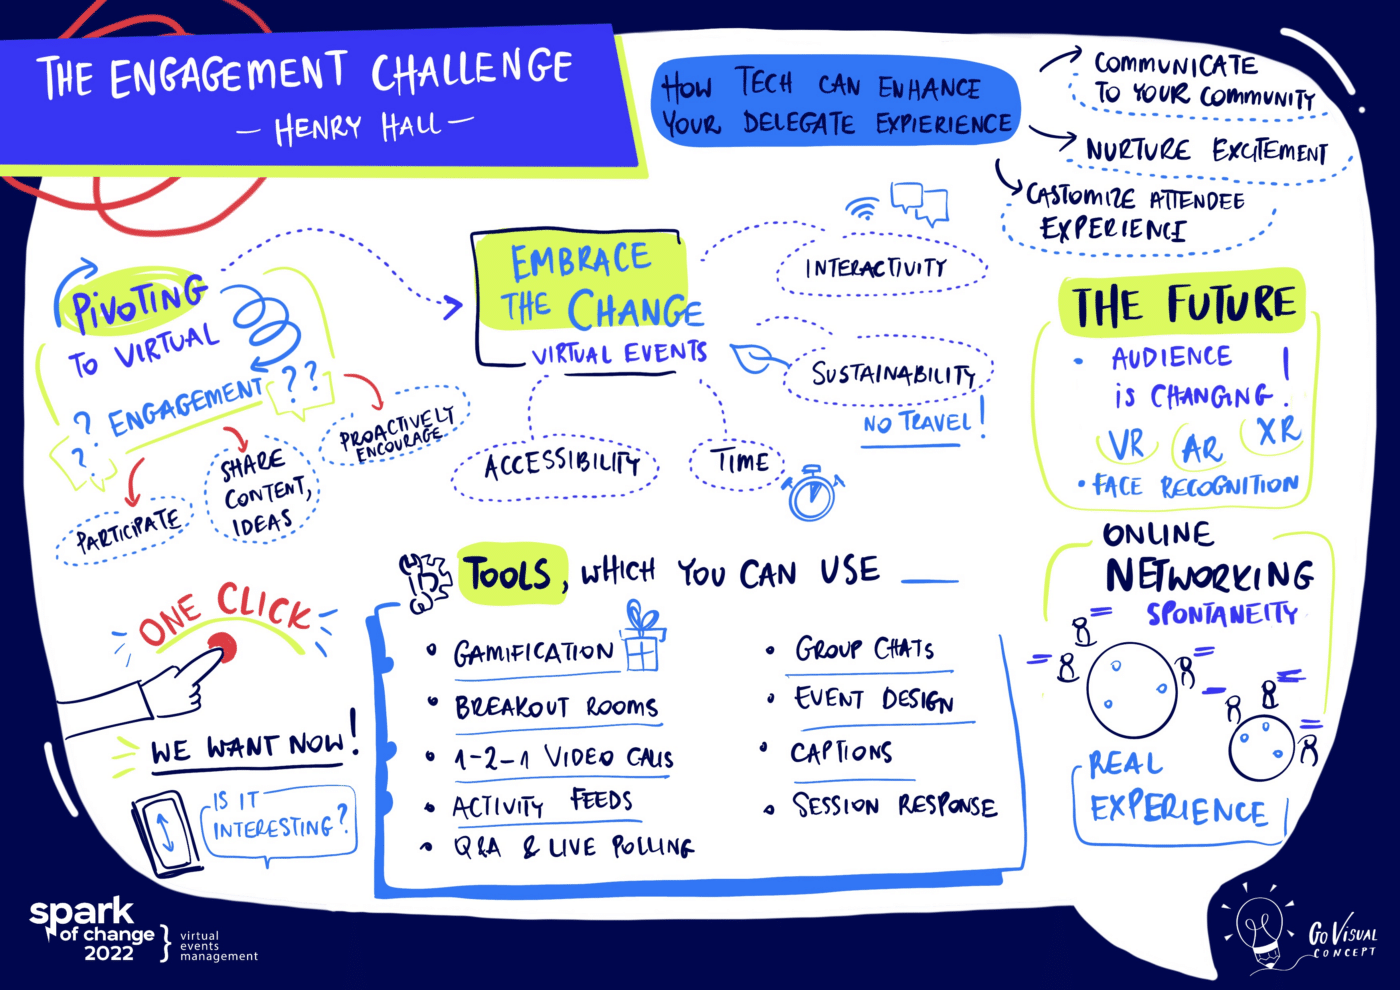 THE ENGAGEMENT CHALLENGE
— HENRY HALL —
HOW TECH CAN ENHANCE
YOUR DELEGATE EXPIERIENCE
COMMUNICATE
TO YOUR COMMUNITY
NURTURE EXCITEMENT
CASTOMIZE ATTENDEE
EXPERIENCE
PIVOTING
TO VIRTUAL
? ENGAGEMENT ??
?
PARTICIPATE
SHARE
CONTENT,
IDEAS
PROACTIVELY
ENCOURAGE
EMBRACE
THE CHANGE
VIRTUAL EVENTS
INTERACTIVITY
SUSTAINABILITY
NO TRAVEL!
ACCESSIBILITY
TIME
THE FUTURE
• AUDIENCE
IS CHANGING!
VR AR XR
• FACE RECOGNITION
ONLINE
NETWORKING
SPONTANEITY
REAL
EXPERIENCE
ONE CLICK
WE WANT NOW!
IS IT
INTERESTING?
TOOLS, WHICH YOU CAN USE
• GAMIFICATION
• BREAKOUT ROOMS
• 1-2-1 VIDEO CALLS
• ACTIVITY FEEDS
• Q&A & LIVE POLLING
• GROUP CHATS
• EVENT DESIGN
• CAPTIONS
• SESSION RESPONSE
spark
of change
2022
virtual
events
management
GO VISUAL
CONCEPT